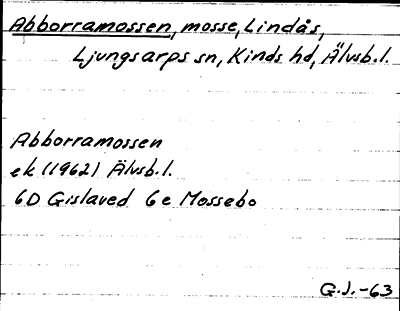 Abborramossen, mosse, Lindås,
Ljungsarps sn, Kinds hd, Älvsb.l.
Abborramossen
ek (1962) Älvsb.l.
6D Gislaved 6e Mossebo
G.J.-63